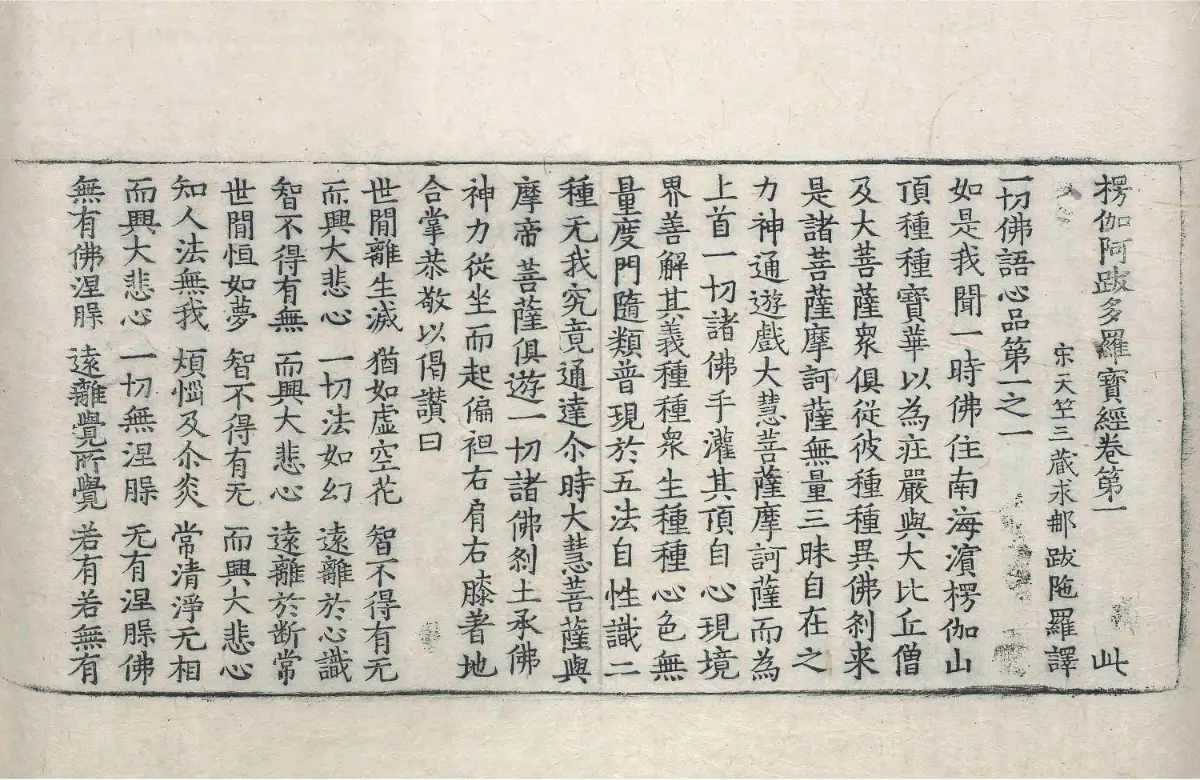 楞伽阿跋多羅寶經卷第一 此
宋天竺三藏求郍跋陁羅譯
一切佛語心品第一之一
如是我聞一時佛住南海濱楞伽山
頂種種寶華以為莊嚴與大比丘僧
及大菩薩衆俱從彼種種異佛剎来
是諸菩薩摩訶薩無量三昧自在之
力神通遊戲大慧菩薩摩訶薩而為
上首一切諸佛手灌其頂自心現境
界善解其義種種衆生種種心色無
量度門隨類普現於五法自性識二
種无我究竟通達尒時大慧菩薩與
摩帝菩薩俱遊一切諸佛剎土承佛
神力從坐而起偏袒右肩右膝著地
合掌恭敬以偈讚曰
世間離生滅 猶如虛空花 智不得有无
而興大悲心 一切法如幻 遠離於心識
智不得有無 而興大悲心 遠離於断常
世間恒如夢 智不得有无 而興大悲心
知人法無我 煩惱及尒炎 常清淨无相
而興大悲心 一切無涅槃 无有涅槃佛
無有佛涅槃 遠離覺所覺 若有若無有